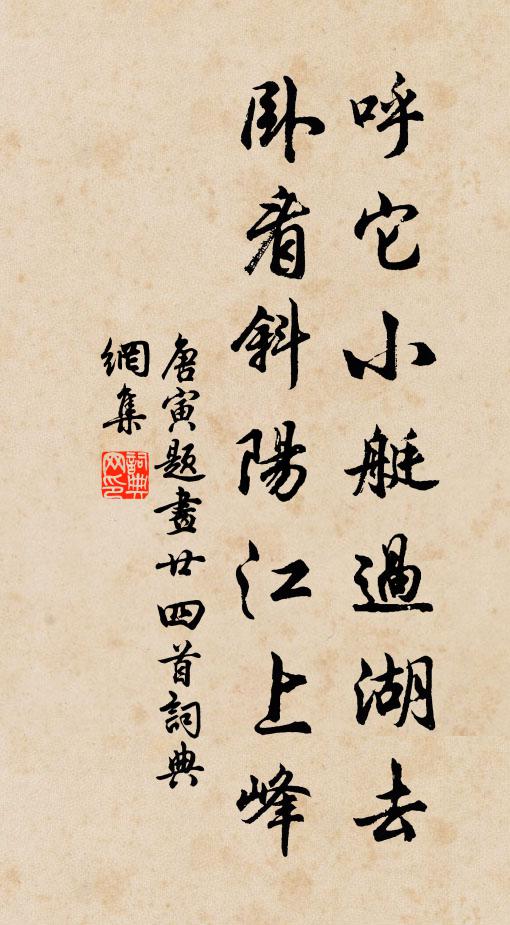 呼它小艇過湖去
卧看斜陽江上峰
唐寅題畫廿四首詞典
網集
詞典
网印